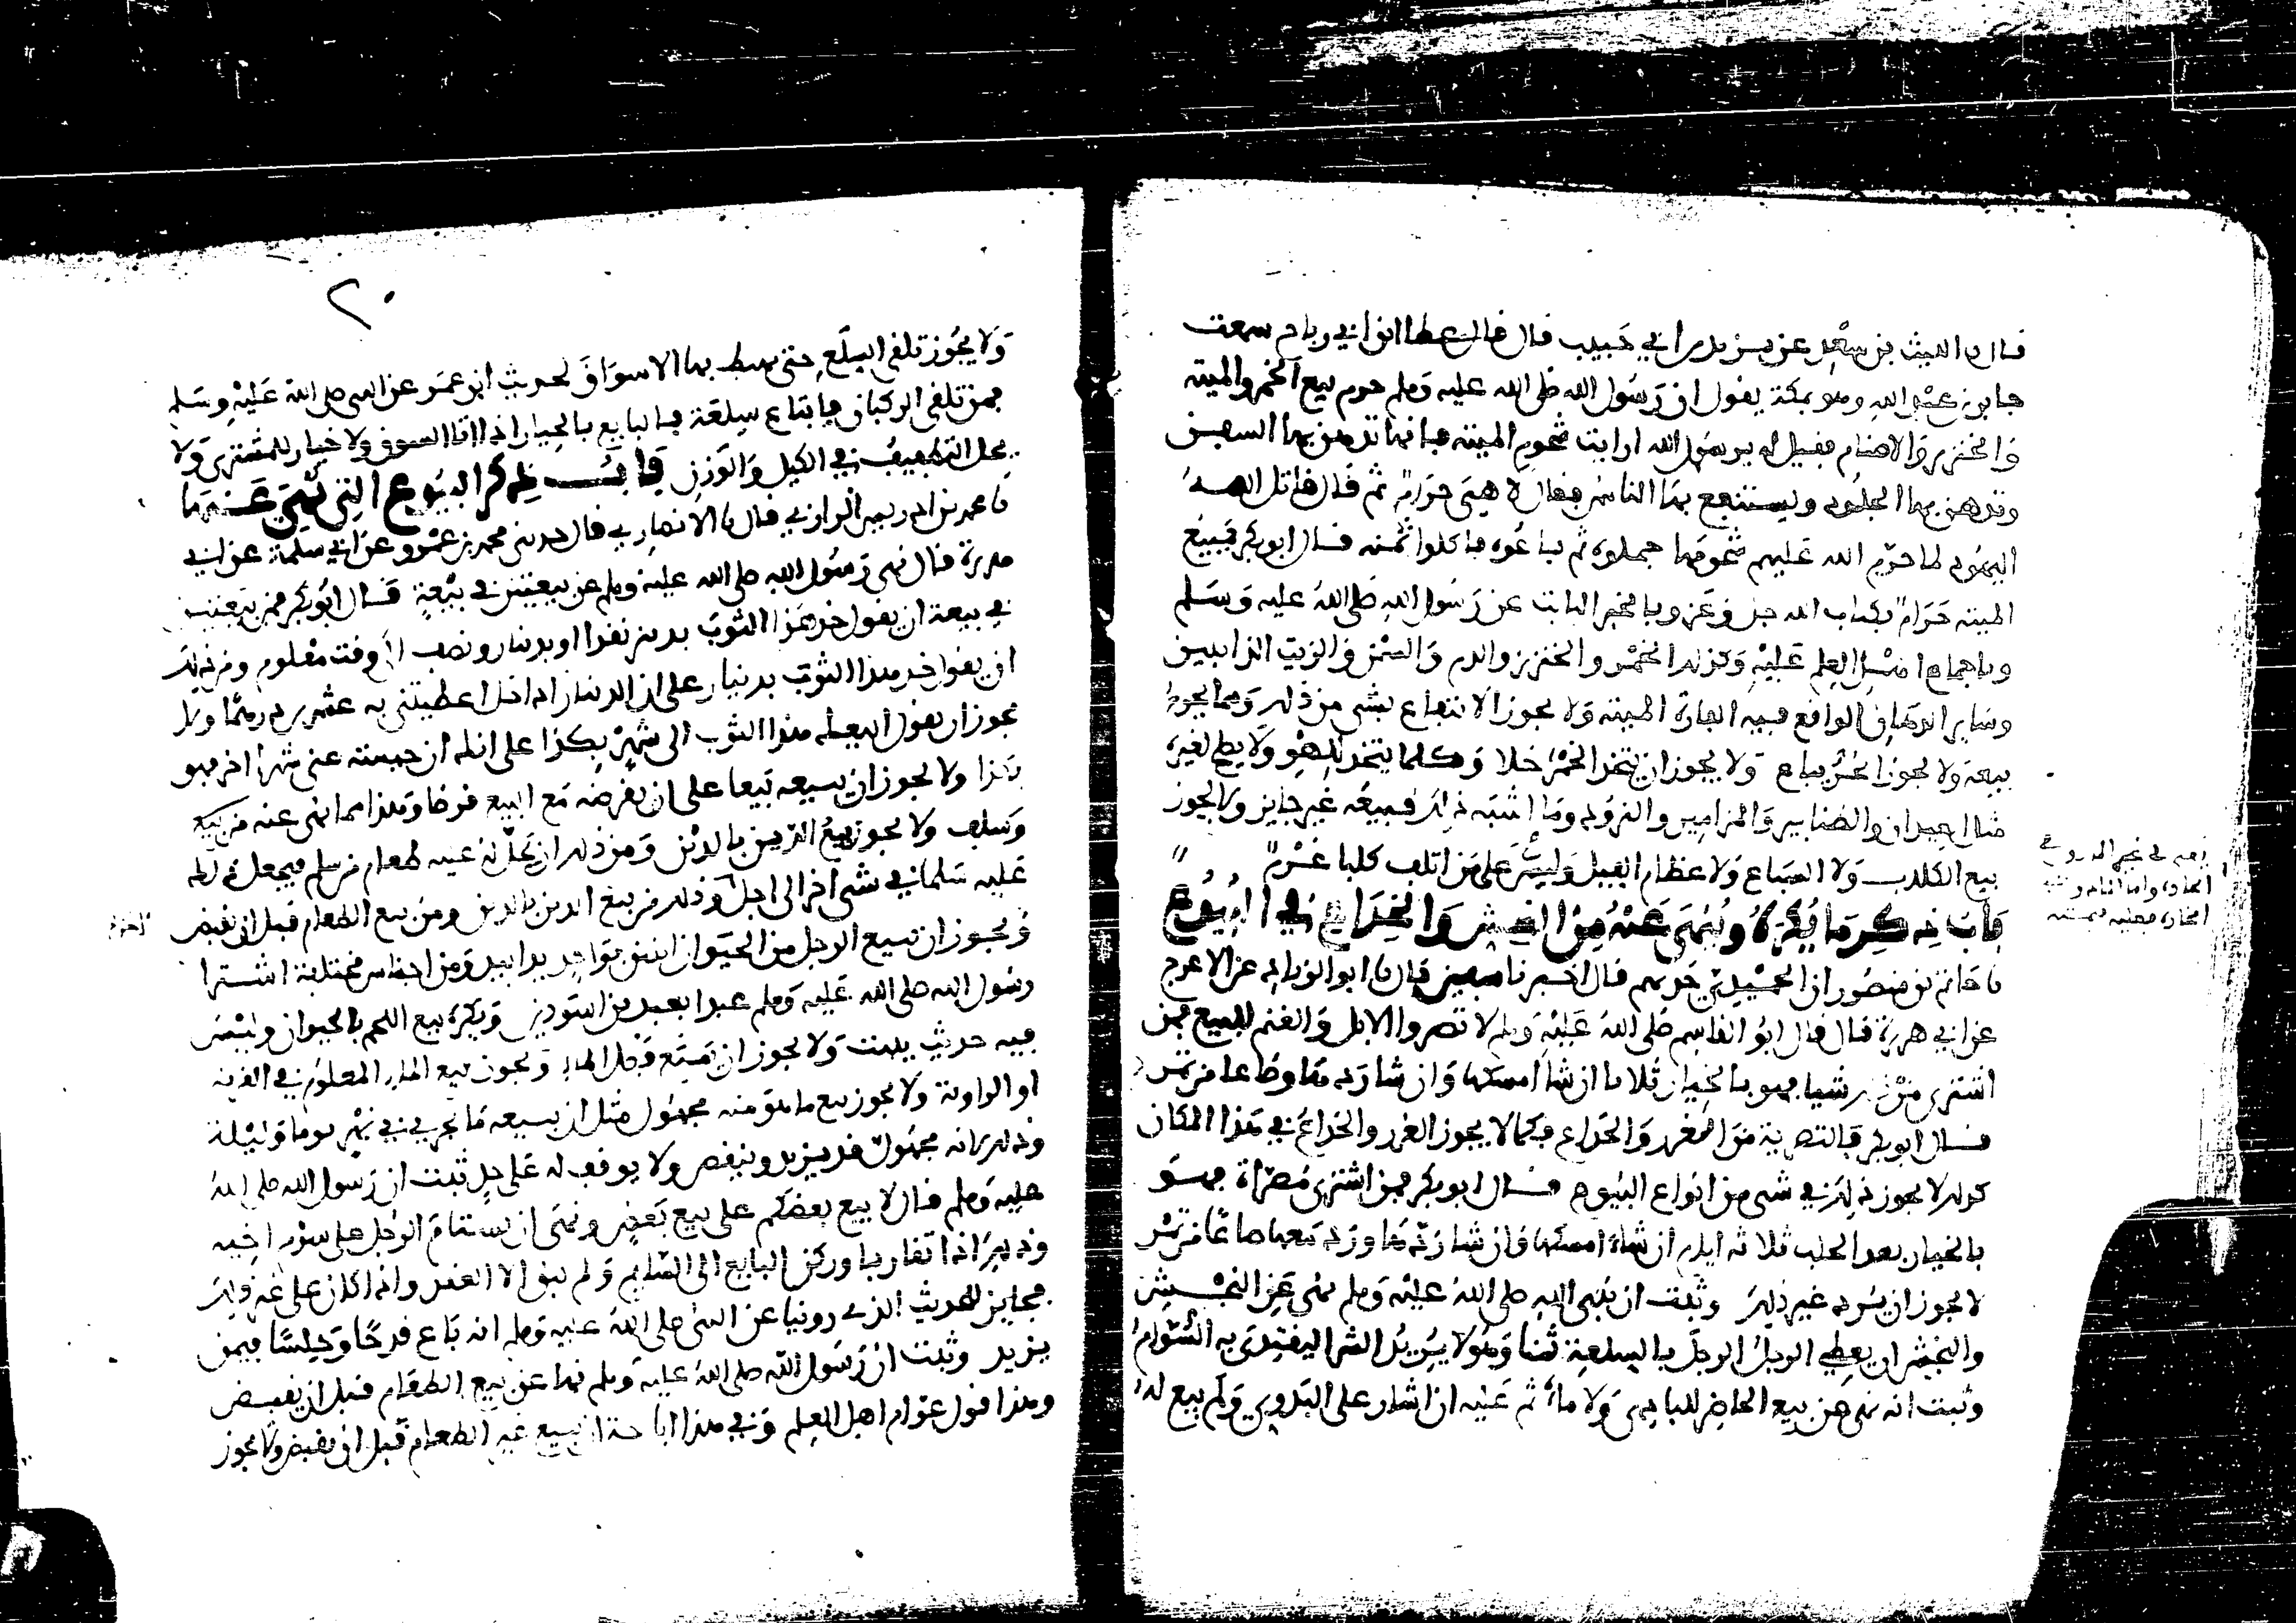 قال نا الليث بن سعد عن يزيد بن ابي حبيب قال قال عطا ابن ابي رباح سمعت
جابر بن عبد الله وهو بمكة يقول ان رسول الله صلى الله عليه وسلم حرم بيع الخمر والميته
والخنزير والاصنام فقيل له يرسول الله ارايت شحوم الميته فانها تدهن بها السفن
وتدهن بها الجلود ويستنفع بها الناس فقال لا هي حرام ثم قال قاتل الله
اليهود لما حرم الله عليهم شحومها جملوه ثم باعوه فاكلوا ثمنه قال ابو بكر فبيع
الميته حرام بكتاب الله جل وعز وبالخبر الثابت عن رسول الله صلى الله عليه وسلم
وباجماع اهل العلم عليه وكذلك الخمر والخنزير والدم والسمن والزيت الذايبين
وساير الادهان الواقع فيه الفارة الميته ولا يجوز الانتفاع بشي من ذلك ومما لا يجوز
بيعه ولا يجوز الحر يباع ولا يجوز ان يتخذ الخمر خلا وكلما يتخذ للهو ولا يصلح لغيره
مثل العيدان والطنابير والمزامير والنرود وما اشبه ذلك فبيعه غير جايز ولا يجوز
بيع الكلاب ولا السباع ولا عظام الفيل وليس على من اتلف كلبا غرم
باب ذكر ما يكره وينهى عنه من الغش والخداع في البيوع
نا حاتم بن منصور ان الحميدي حدثهم قال اخبرنا سفين قال نا ابو الزناد عن الاعرج
عن ابي هريرة قال قال ابو القاسم صلى الله عليه وسلم لا تصروا الابل والغنم للبيع فمن
اشترى من ذلك شيا فهو بالخيار ثلاثا ان شا امسكها وان شا ردها وصاعا من تمر
قال ابو بكر فالتصرية من الغرر والخداع فكما لا يجوز الغرر والخداع في هذا المكان
كذلك لا يجوز ذلك في شي من انواع البيوع قال ابو بكر فمن اشترى مصراة فهو
بالخيار بعد الحلب ثلاثه ايام ان شاء امسكها وان شا ردها ورد معها صاعا من تمر
لا يجوز ان يرد غير ذلك وثبت ان نبي الله صلى الله عليه وسلم نهى عن النجش
والنجش ان يعطي الرجل الرجل بالسلعة ثمنا وهو لا يريد الشرا ليقتدي به السوام
وثبت انه نهى عن بيع الحاضر للبادي ولا ماثم عليه ان اشار على البدوي ولم يبع له
٢٠
ولا يجوز تلقي السلع حتى يهبط بها الاسواق لحديث ابن عمر عن النبي صلى الله عليه وسلم
فمن تلقى الركبان فابتاع سلعة فالبايع بالخيار اذا اتا السوق ولا خيار للمشتري ولا
يحل التطفيف في الكيل والوزن باب ذكر البيوع التي نهي عنها
نا محمد بن ادريس الرازي قال نا الانصاري قال حدثني محمد بن عمرو عن ابي سلمة عن ابي
هريرة قال نهى رسول الله صلى الله عليه وسلم عن بيعتين في بيعة قال ابو بكر فمن بيعتين
في بيعة ان يقول خذ هذا الثوب بدينر نقدا او بدينار ونصف الى وقت معلوم ومن ذلك
ان يقول خذ هذا الثوب بدينار على ان الدينار اذا حل اعطيتني به عشرين درهما ولا
يجوز ان يقول ابيعك هذا الثوب الى شهر بكذا على انك ان حبسته عني شهرا اخر فهو
بكذا ولا يجوز ان يبيعه بيعا على ان يقرضه مع البيع قرضا وهذا مما نهي عنه من بيع
وسلف ولا يجوز بيع الدين بالدين ومن ذلك ان يحل له عليه طعام من سلم فيجعل ذلك
عليه سلما في شي اخر الى اجل وذلك من بيع الدين بالدين ومن بيع الطعام قبل ان يقبض
ويجوز ان يبيع الرجل من الحيوان اثنين بواحد يدا بيد ومن اجناس مختلفة اشترا
رسول الله صلى الله عليه وسلم عبدا بعبدين اسودين ويكره بيع اللحم بالحيوان وليس
فيه حديث يثبت ولا يجوز ان يمنع فضل الماء ويجوز بيع الماء المعلوم في القربة
او الراوية ولا يجوز بيع ما هو منه مجهول مثل ان يبيعه ما يجري في نهر يوما وليلة
وذلك انه مجهول قد يزيد وينقص ولا يوقف له على حد ثبت ان رسول الله صلى الله
عليه وسلم قال لا يبيع بعضكم على بيع بعض ونهى ان يستام الرجل على سوم اخيه
وذلك اذا تقاربا وركن البايع الى السايم ولم يبق الا العقد واذا كان على غير ذلك
فجايز للحديث الذي روينا عن النبي صلى الله عليه وسلم انه باع قدحا وحلسا فيمن
يزيد وثبت ان رسول الله صلى الله عليه وسلم نها عن بيع الطعام قبل ان يقبض
وهذا قول عوام اهل العلم وفي هذا اباحة ان يبيع غير الطعام قبل ان يقبض ولا يجوز